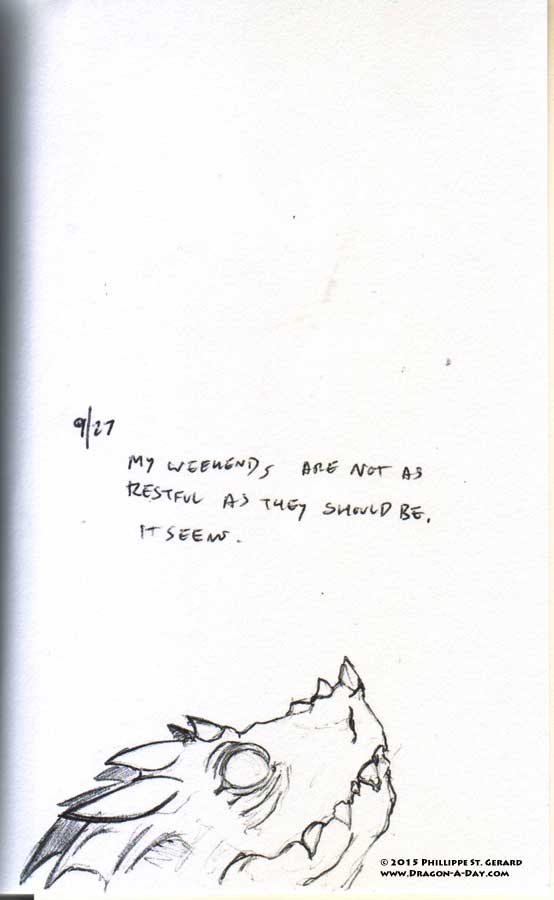 9/27
MY WEEKENDS ARE NOT AS
RESTFUL AS THEY SHOULD BE,
IT SEEMS.
© 2015 PHILLIPPE ST. GERARD
WWW.DRAGON-A-DAY.COM